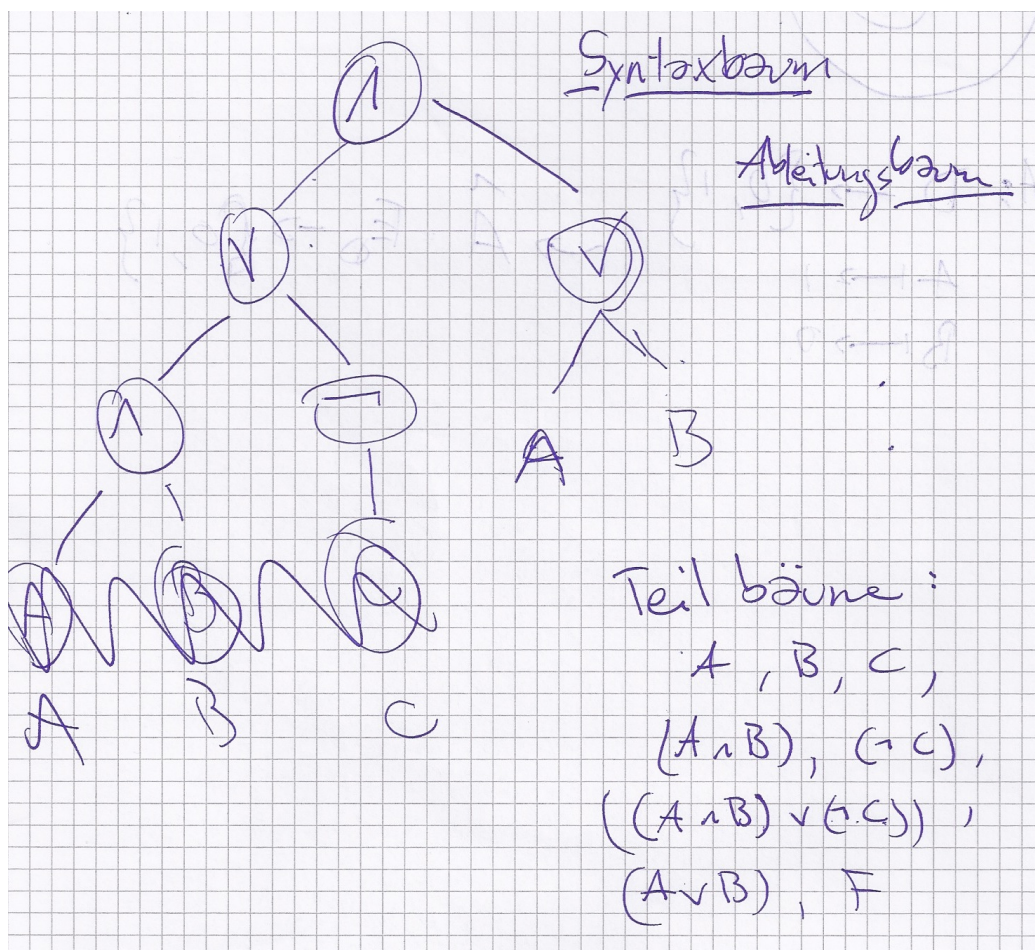 Syntaxbaum
Ableitungsbaum
∧
∨ ∨
∧ ¬
A B
A B C
A B C
Teilbäume:
A, B, C,
(A∧B), (¬C),
((A∧B) ∨ (¬C)),
(A∨B), F